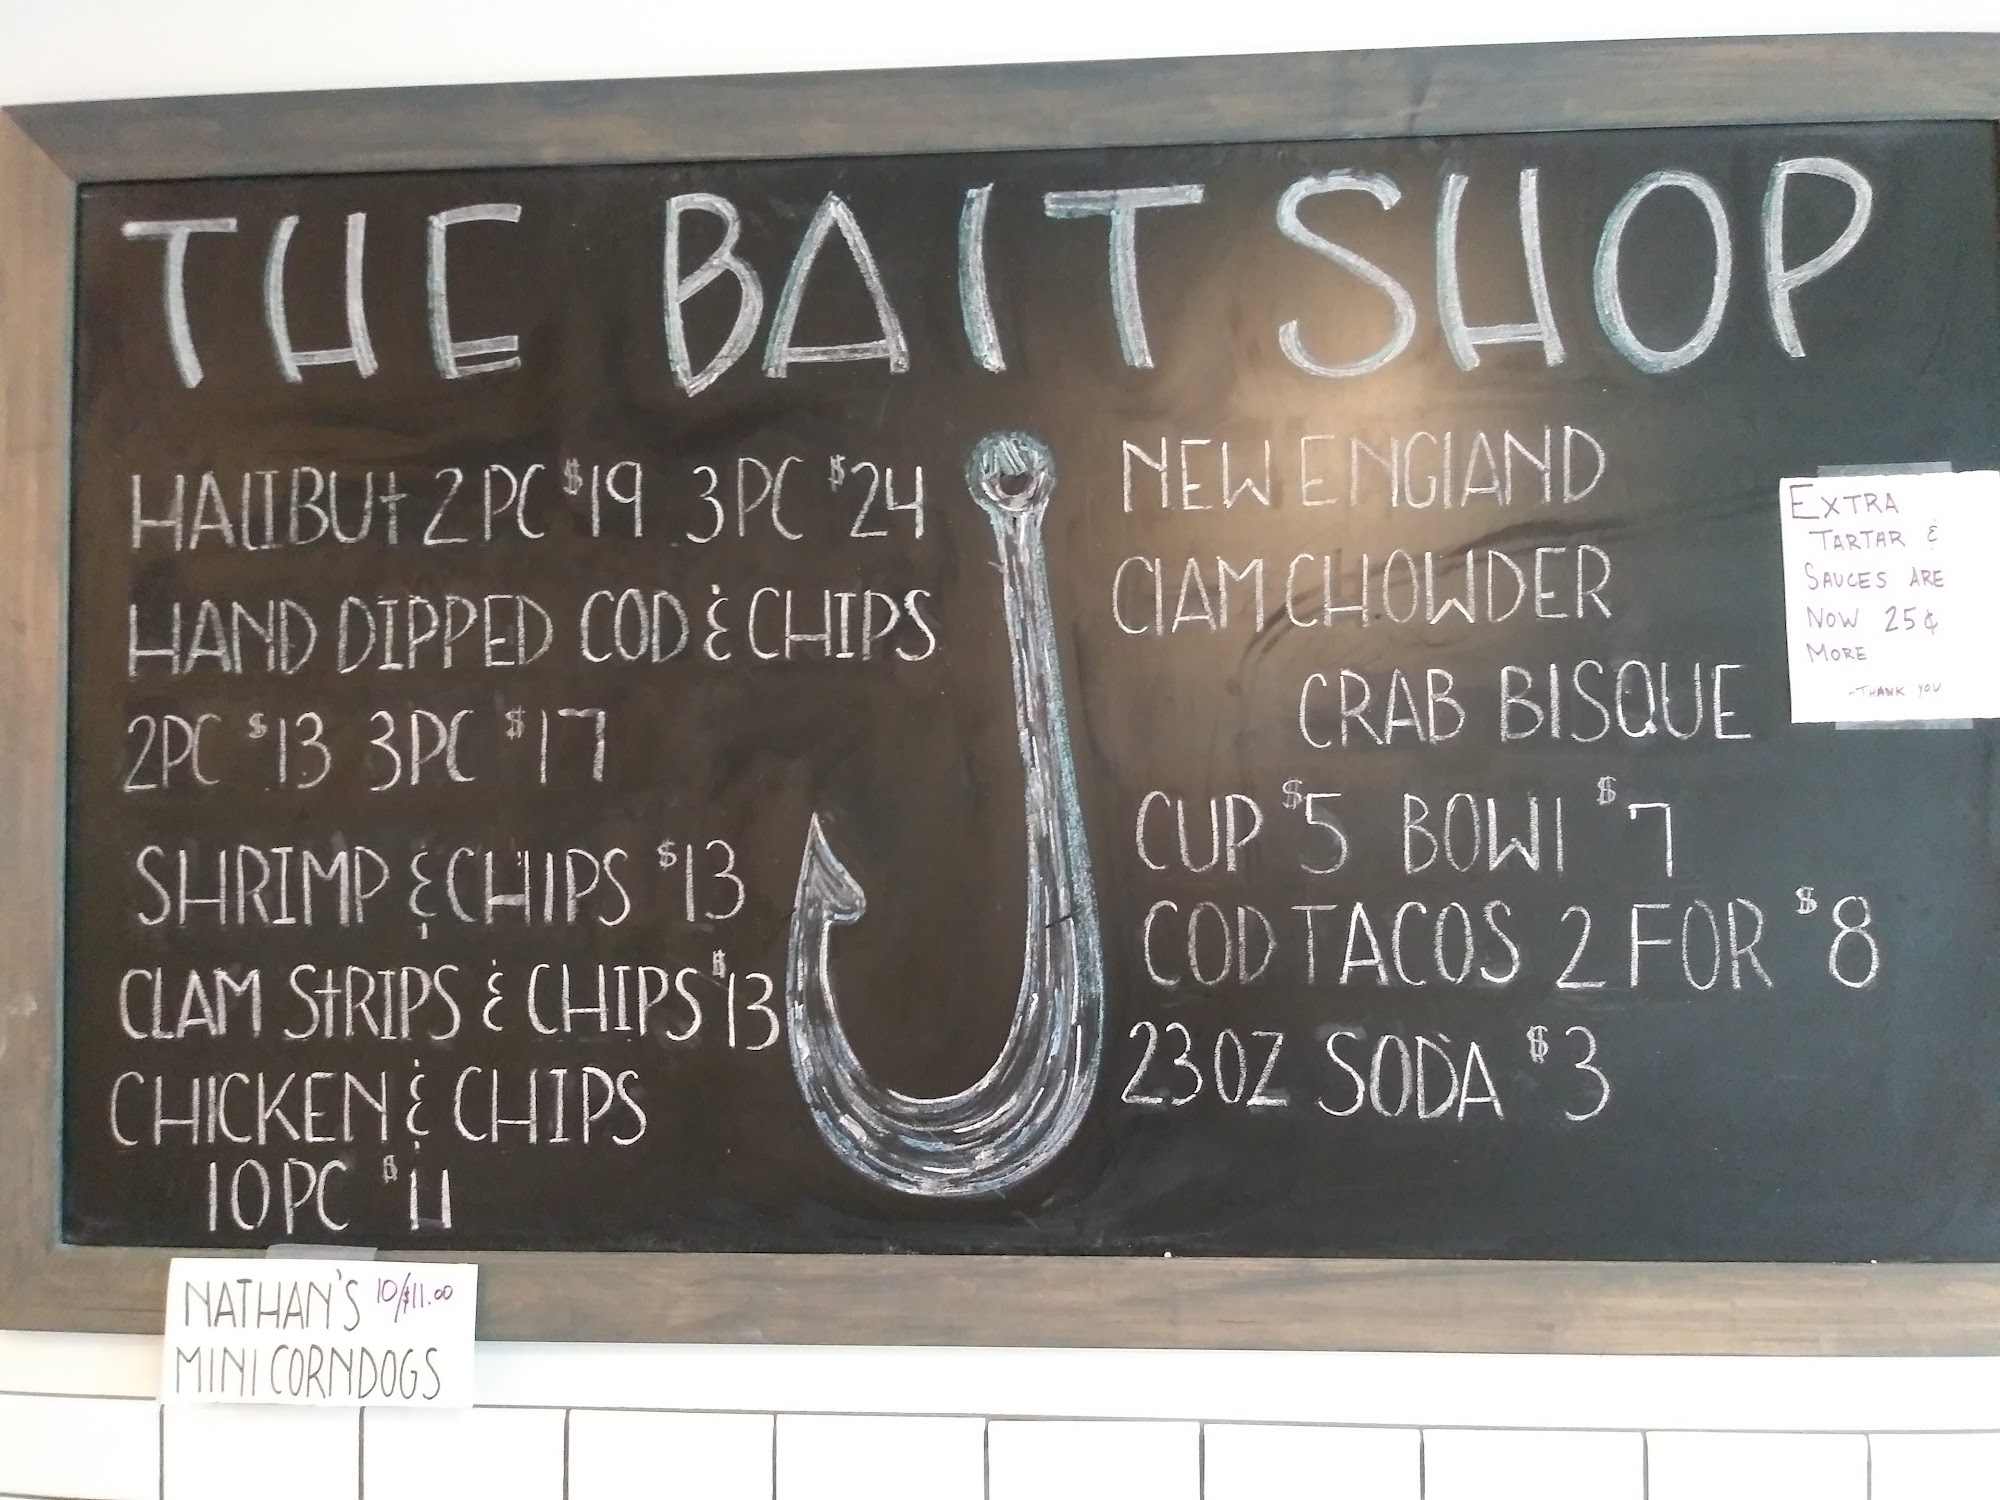 THE BAIT SHOP
HALIBUT 2 PC $19 3 PC $24
HAND DIPPED COD & CHIPS
2PC $13 3PC $17
SHRIMP & CHIPS $13
CLAM STRIPS & CHIPS $13
CHICKEN & CHIPS
10 PC $11
NEW ENGLAND
CLAM CHOWDER
CRAB BISQUE
CUP $5 BOWL $7
COD TACOS 2 FOR $8
23 OZ SODA $3
EXTRA
TARTAR &
SAUCES ARE
NOW 25¢
MORE
-THANK YOU
NATHAN'S 10/$11.00
MINI CORNDOGS